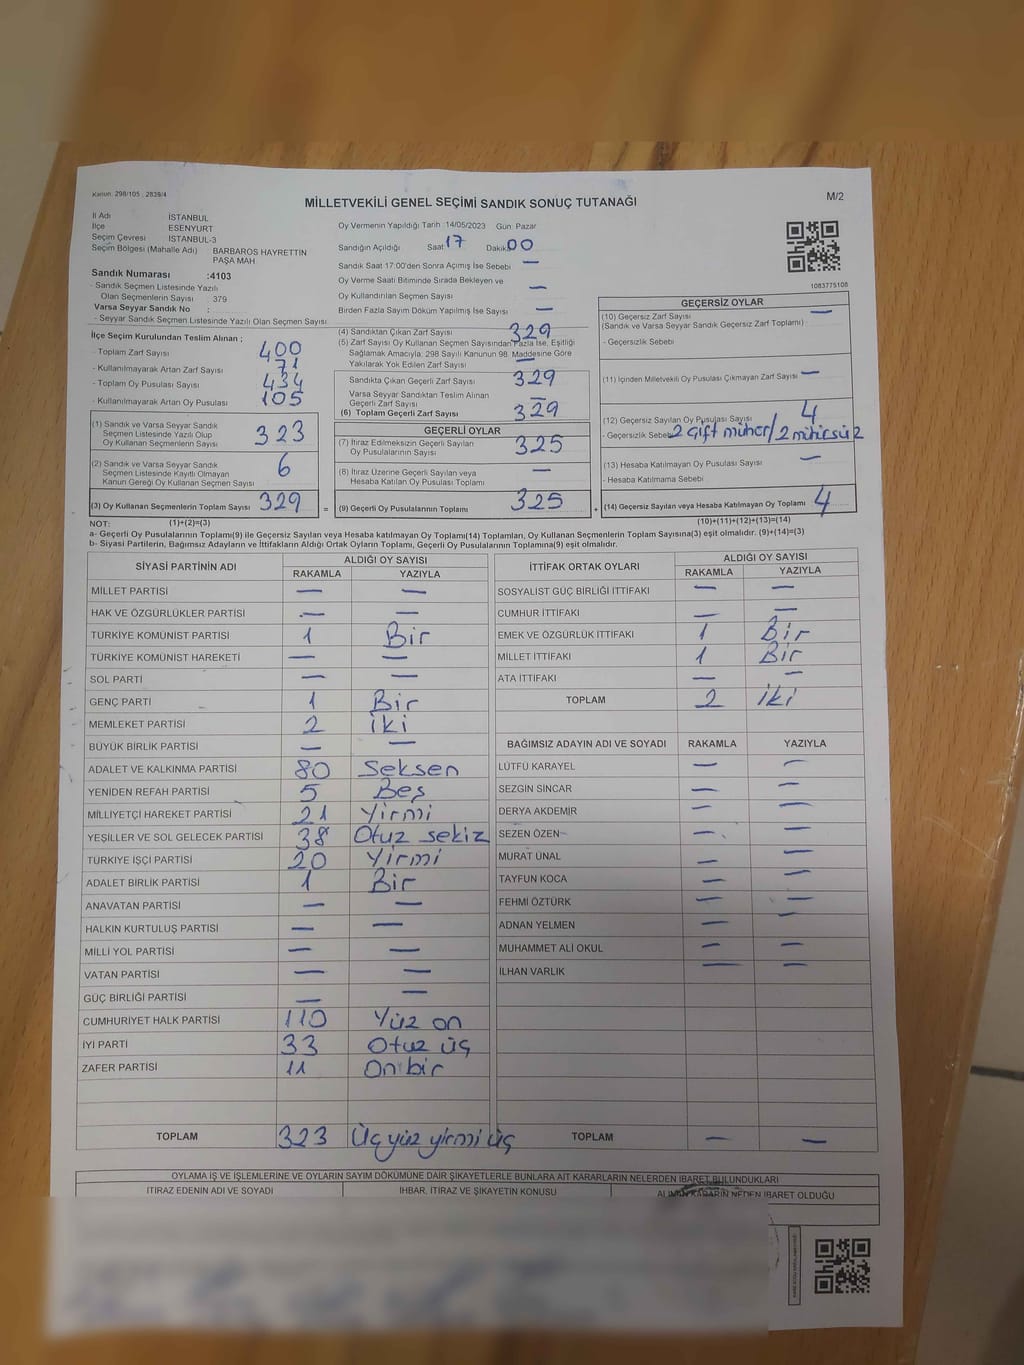 Kanun: 298/105 , 2839/4
M/2
MİLLETVEKİLİ GENEL SEÇİMİ SANDIK SONUÇ TUTANAĞI
İl Adı İSTANBUL
İlçe ESENYURT
Seçim Çevresi İSTANBUL-3
Seçim Bölgesi (Mahalle Adı) BARBAROS HAYRETTİN PAŞA MAH
Sandık Numarası :4103
- Sandık Seçmen Listesinde Yazılı
Olan Seçmenlerin Sayısı : 379
Varsa Seyyar Sandık No :
- Seyyar Sandık Seçmen Listesinde Yazılı Olan Seçmen Sayısı
Oy Vermenin Yapıldığı Tarih :14/05/2023 Gün Pazar
Sandığın Açıldığı Saat 17 Dakika 00
Sandık Saat 17:00'den Sonra Açımış İse Sebebi —
Oy Verme Saati Bitiminde Sırada Bekleyen ve
Oy Kullandırılan Seçmen Sayısı —
Birden Fazla Sayım Döküm Yapılmış İse Sayısı —
1083775108
İlçe Seçim Kurulundan Teslim Alınan ;
- Toplam Zarf Sayısı 400
- Kullanılmayarak Artan Zarf Sayısı 71
- Toplam Oy Pusulası Sayısı 434
- Kullanılmayarak Artan Oy Pusulası 105
(1) Sandık ve Varsa Seyyar Sandık
Seçmen Listesinde Yazılı Olup
Oy Kullanan Seçmenlerin Sayısı 323
(2) Sandık ve Varsa Seyyar Sandık
Seçmen Listesinde Kayıtlı Olmayan
Kanun Gereği Oy Kullanan Seçmen Sayısı 6
(3) Oy Kullanan Seçmenlerin Toplam Sayısı 329 =
(4) Sandıktan Çıkan Zarf Sayısı 329
(5) Zarf Sayısı Oy Kullanan Seçmen Sayısından Fazla İse, Eşitliği
Sağlamak Amacıyla, 298 Sayılı Kanunun 98. Maddesine Göre
Yakılarak Yok Edilen Zarf Sayısı —
Sandıkta Çıkan Geçerli Zarf Sayısı 329
Varsa Seyyar Sandıktan Teslim Alınan
Geçerli Zarf Sayısı —
(6) Toplam Geçerli Zarf Sayısı 329
GEÇERLİ OYLAR
(7) İtiraz Edilmeksizin Geçerli Sayılan
Oy Pusulalarının Sayısı 325
(8) İtiraz Üzerine Geçerli Sayılan veya
Hesaba Katılan Oy Pusulası Toplamı —
(9) Geçerli Oy Pusulalarının Toplamı 325 +
GEÇERSİZ OYLAR
(10) Geçersiz Zarf Sayısı —
(Sandık ve Varsa Seyyar Sandık Geçersiz Zarf Toplamı)
- Geçersizlik Sebebi
(11) İçinden Milletvekili Oy Pusulası Çıkmayan Zarf Sayısı —
(12) Geçersiz Sayılan Oy Pusulası Sayısı 4
- Geçersizlik Sebebi 2 Çift müher/2 mühürsüz
(13) Hesaba Katılmayan Oy Pusulası Sayısı —
- Hesaba Katılmama Sebebi
(14) Geçersiz Sayılan veya Hesaba Katılmayan Oy Toplamı 4
NOT: (1)+(2)=(3) (10)+(11)+(12)+(13)=(14)
a- Geçerli Oy Pusulalarının Toplamı(9) ile Geçersiz Sayılan veya Hesaba Katılmayan Oy Toplamı(14) Toplamları, Oy Kullanan Seçmenlerin Toplam Sayısına(3) eşit olmalıdır. (9)+(14)=(3)
b- Siyasi Partilerin, Bağımsız Adayların ve İttifakların Aldığı Ortak Oyların Toplamı, Geçerli Oy Pusulalarının Toplamına(9) eşit olmalıdır.
SİYASİ PARTİNİN ADI ALDIĞI OY SAYISI
RAKAMLA YAZIYLA
MİLLET PARTİSİ — —
HAK VE ÖZGÜRLÜKLER PARTİSİ — —
TÜRKİYE KOMÜNİST PARTİSİ 1 Bir
TÜRKİYE KOMÜNİST HAREKETİ — —
SOL PARTİ — —
GENÇ PARTİ 1 Bir
MEMLEKET PARTİSİ 2 iki
BÜYÜK BİRLİK PARTİSİ — —
ADALET VE KALKINMA PARTİSİ 80 Seksen
YENİDEN REFAH PARTİSİ 5 Beş
MİLLİYETÇİ HAREKET PARTİSİ 21 Yirmi
YEŞİLLER VE SOL GELECEK PARTİSİ 38 Otuz sekiz
TÜRKİYE İŞÇİ PARTİSİ 20 Yirmi
ADALET BİRLİK PARTİSİ 1 Bir
ANAVATAN PARTİSİ — —
HALKIN KURTULUŞ PARTİSİ — —
MİLLİ YOL PARTİSİ — —
VATAN PARTİSİ — —
GÜÇ BİRLİĞİ PARTİSİ — —
CUMHURİYET HALK PARTİSİ 110 Yüz on
İYİ PARTİ 33 Otuz üç
ZAFER PARTİSİ 11 On bir
TOPLAM 323 Üç yüz yirmi üç
İTTİFAK ORTAK OYLARI ALDIĞI OY SAYISI
RAKAMLA YAZIYLA
SOSYALİST GÜÇ BİRLİĞİ İTTİFAKI — —
CUMHUR İTTİFAKI — —
EMEK VE ÖZGÜRLÜK İTTİFAKI 1 Bir
MİLLET İTTİFAKI 1 Bir
ATA İTTİFAKI — —
TOPLAM 2 iki
BAĞIMSIZ ADAYIN ADI VE SOYADI RAKAMLA YAZIYLA
LÜTFÜ KARAYEL — —
SEZGİN SİNCAR — —
DERYA AKDEMİR — —
SEZEN ÖZEN — —
MURAT ÜNAL — —
TAYFUN KOCA — —
FEHMİ ÖZTÜRK — —
ADNAN YELMEN — —
MUHAMMET ALİ OKUL — —
İLHAN VARLIK — —
TOPLAM — —
OYLAMA İŞ VE İŞLEMLERİNE VE OYLARIN SAYIM DÖKÜMÜNE DAİR ŞİKAYETLERLE BUNLARA AİT KARARLARIN NELERDEN İBARET BULUNDUKLARI
İTİRAZ EDENİN ADI VE SOYADI İHBAR, İTİRAZ VE ŞİKAYETİN KONUSU ALINAN KARARIN NEDEN İBARET OLDUĞU